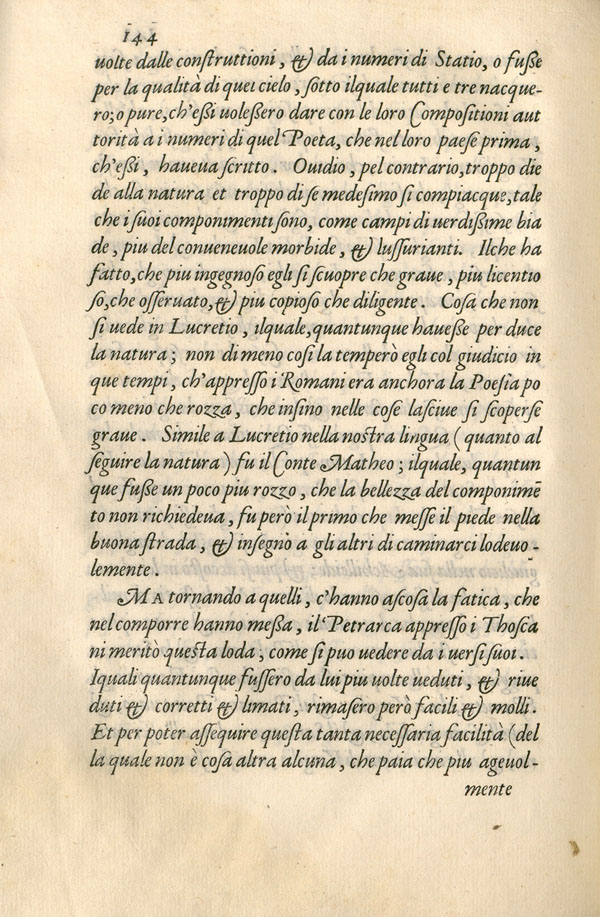 144
uolte dalle conſtruttioni, & da i numeri di Statio, o fuſſe
per la qualità di quel cielo, ſotto ilquale tutti e tre nacque-
ro; o pure, ch'eßi uoleßero dare con le loro Compoſitioni aut
torità a i numeri di quel Poeta, che nel loro paeſe prima,
ch'eßi, haueua ſcritto. Ouidio, pel contrario, troppo die
de alla natura et troppo di ſe medeſimo ſi compiacque, tale
che i ſuoi componimenti ſono, come campi di uerdißime bia
de, piu del conueneuole morbide, & luſſurianti. Ilche ha
fatto, che piu ingegnoſo egli ſi ſcuopre che graue, piu licentio
ſo, che oſſeruato, & piu copioſo che diligente. Coſa che non
ſi uede in Lucretio, ilquale, quantunque haueße per duce
la natura; non di meno coſi la temperò egli col giudicio in
que tempi, ch'appreſſo i Romani era anchora la Poeſia po
co meno che rozza, che inſino nelle coſe laſciue ſi ſcoperſe
graue. Simile a Lucretio nella noſtra lingua (quanto al
ſeguire la natura) fu il Conte Matheo; ilquale, quantun
que fuße un poco piu rozzo, che la bellezza del componimē
to non richiedeua, fu però il primo che meſſe il piede nella
buona ſtrada, & inſegnò a gli altri di caminarci lodeuo-
lemente.
MA tornando a quelli, c'hanno aſcoſa la fatica, che
nel comporre hanno meßa, il Petrarca appreſſo i Thoſca
ni meritò queſta loda, come ſi puo uedere da i uerſi ſuoi.
Iquali quantunque fuſſero da lui piu uolte ueduti, & riue
duti & corretti & limati, rimaſero però facili & molli.
Et per poter aſſequire queſta tanta neceſſaria facilità (del
la quale non è coſa altra alcuna, che paia che piu ageuol-
mente